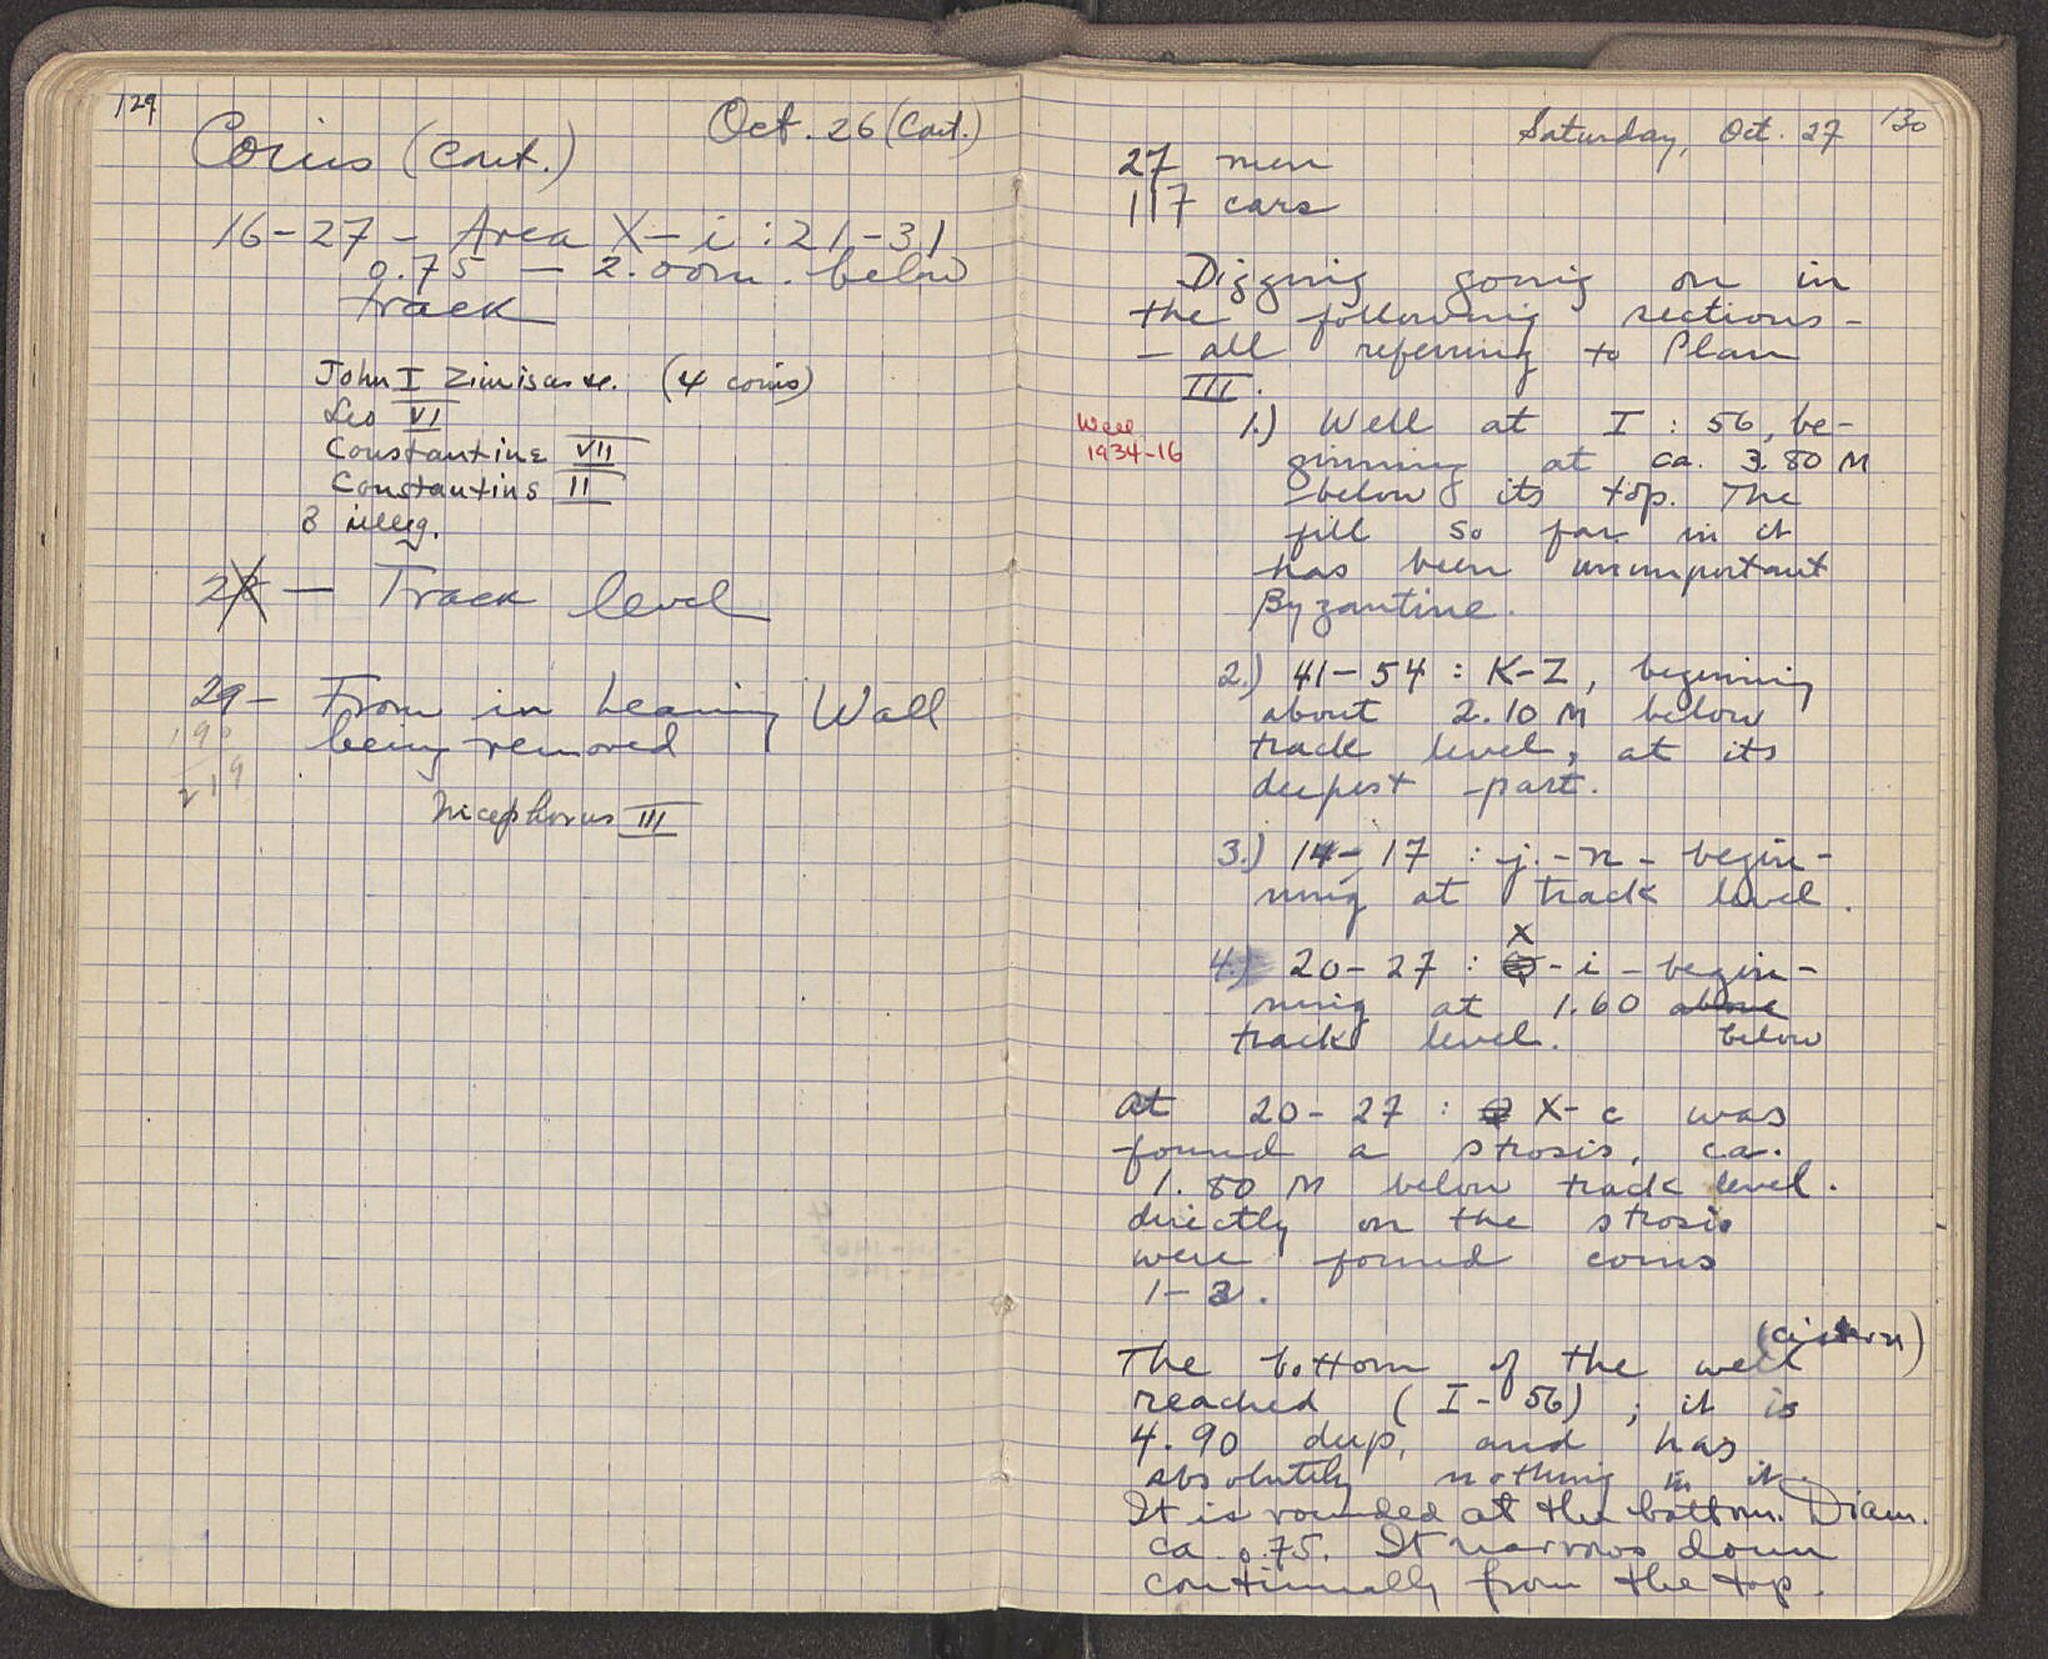 129
Oct. 26 (Cont.)
Coins (cont.)
16-27 - Area X-i : 21-31
0.75 - 2.00m. below
track
John I Zimisces. (4 coins)
Leo VI
Constantine VII
Constantius II
3 illeg.
28 - Track level
29 - From in Leaning Wall
being removed
190
219
Nicephorus III
Saturday, Oct. 27
130
27 men
117 cars
Digging going on in
the following sections -
- all referring to Plan
III.
Well
1934-16
1.) Well at I : 56, be-
ginning at ca. 3.80 M
below its top. The
fill so far in it
has been unimportant
Byzantine.
2.) 41-54 : K-Z, beginning
about 2.10 M below
track level, at its
deepest part.
3.) 14-17 : j.-n - begin-
ning at track level.
X
4.) 20-27 : Q-i - begin-
ning at 1.60 above
track level. below
At 20-27 : Q X-c was
found a strosis, ca.
1.80 M below track level.
directly on the strosis
were found coins
1-3.
(cistern)
The bottom of the well
reached (I-56) ; it is
4.90 deep, and has
absolutely nothing in it.
It is rounded at the bottom. Diam.
ca 0.75. It narrows down
continually from the top.